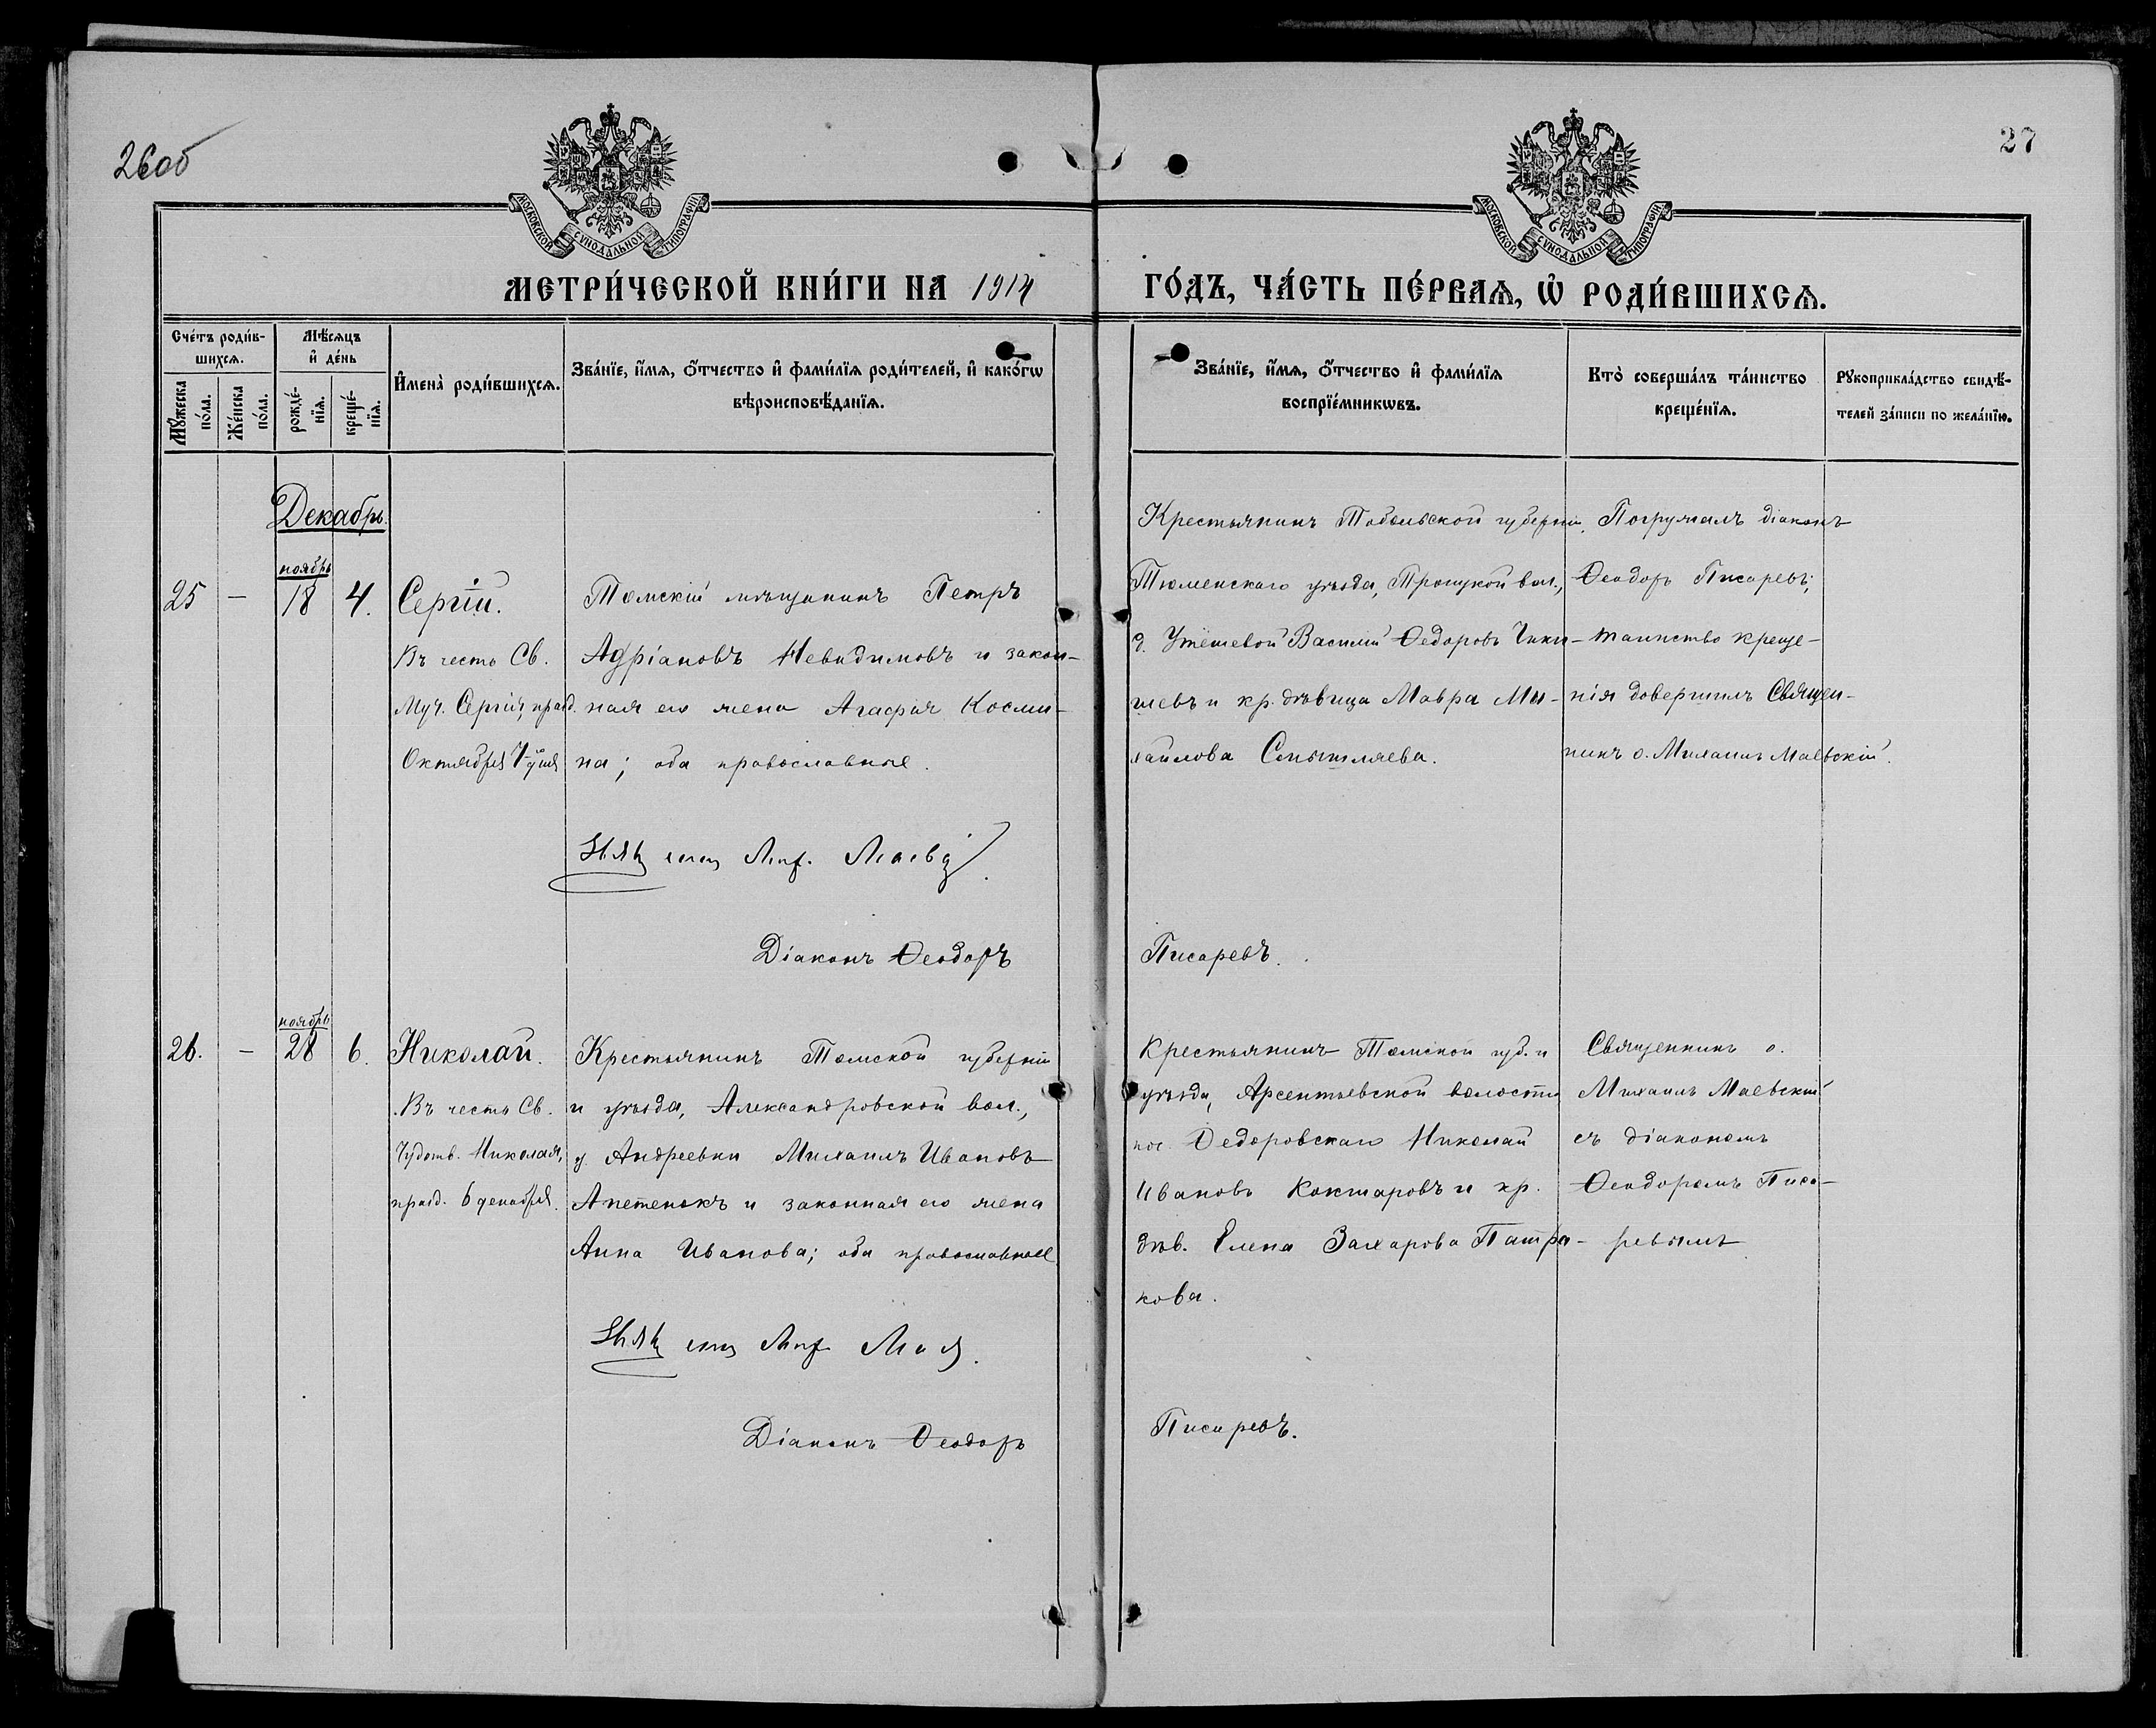 26об
27
МОСКОВСКОЙ СѴНОДАЛЬНОЙ ТИПОГРАФІИ
МОСКОВСКОЙ СѴНОДАЛЬНОЙ ТИПОГРАФІИ
МЕТРИ́ЧЕСКОЙ КНИ́ГИ НА 1914
ГО́ДЪ, ЧА́СТЬ ПЕ́РВАѦ, Ѡ҆ РОДИ́ВШИХСѦ.
Сче́тъ роди́в-
шихсѧ.
Мꙋ́жеска по́ла.
Же́нска по́ла.
Мѣ́сѧцъ
и҆ де́нь
рожде́-
нїѧ.
креще́-
нїѧ.
И҆мена̀ роди́вшихсѧ.
Зва́нїе, и҆́мѧ, ѻ҆́тчество и҆ фами́лїѧ роди́телей, и҆ како́гѡ
вѣроисповѣ́данїѧ.
Зва́нїе, и҆́мѧ, ѻ҆́тчество и҆ фами́лїѧ
воспрїе́мникѡвъ.
Кто̀ соверша́лъ та́инство
креще́нїѧ.
Рꙋкоприкла́дство свидѣ́-
телей за́писи по жела́нїю.
Декабрь.
25
—
ноябрь
18
4.
Сергій.
Въ честь Св.
Муч. Сергія, празд.
Октября 7-го дня
Томскій мѣщанинъ Петръ
Адріановъ Невидимовъ и закон-
ная его жена Агафія Косми-
на; оба православные.
Діаконъ Ѳеодоръ
Крестьянинъ Тобольской губерніи,
Тюменскаго уѣзда, Троицкой вол.,
д. Утешевой Василій Ѳедоровъ Чики-
шевъ и кр. дѣвица Мавра Ми-
хайлова
Погружалъ діаконъ
Ѳеодоръ Писаревъ;
таинство креще-
нія довершилъ Священ-
никъ о. Михаилъ Маевскій.
Писаревъ.
26.
—
ноябрь
28
6.
Николай.
Въ честь Св.
Чудотв. Николая,
празд. 6 декабря.
Крестьянинъ Томской губерніи
и уѣзда, Александровской вол.,
д. Андреевки Михаилъ Ивановъ
Апетенокъ и законная его жена
Анна Иванова; оба православные
Діаконъ Ѳеодоръ
Крестьянинъ Томской губ. и
уѣзда, Арсентьевской волости
пос. Ѳедоровскаго Николай
Ивановъ Кокшаровъ и кр.
дѣв. Елена Захарова Патра-
кова.
Священникъ о.
Михаилъ Маевскій
съ діакономъ
Ѳеодоромъ Писа-
ревымъ
Писаревъ.